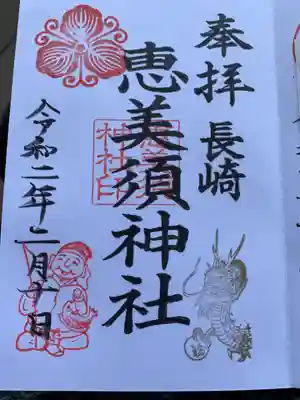 奉拝 長崎
恵美須神社
恵美須
神社印
令和二年二月十日